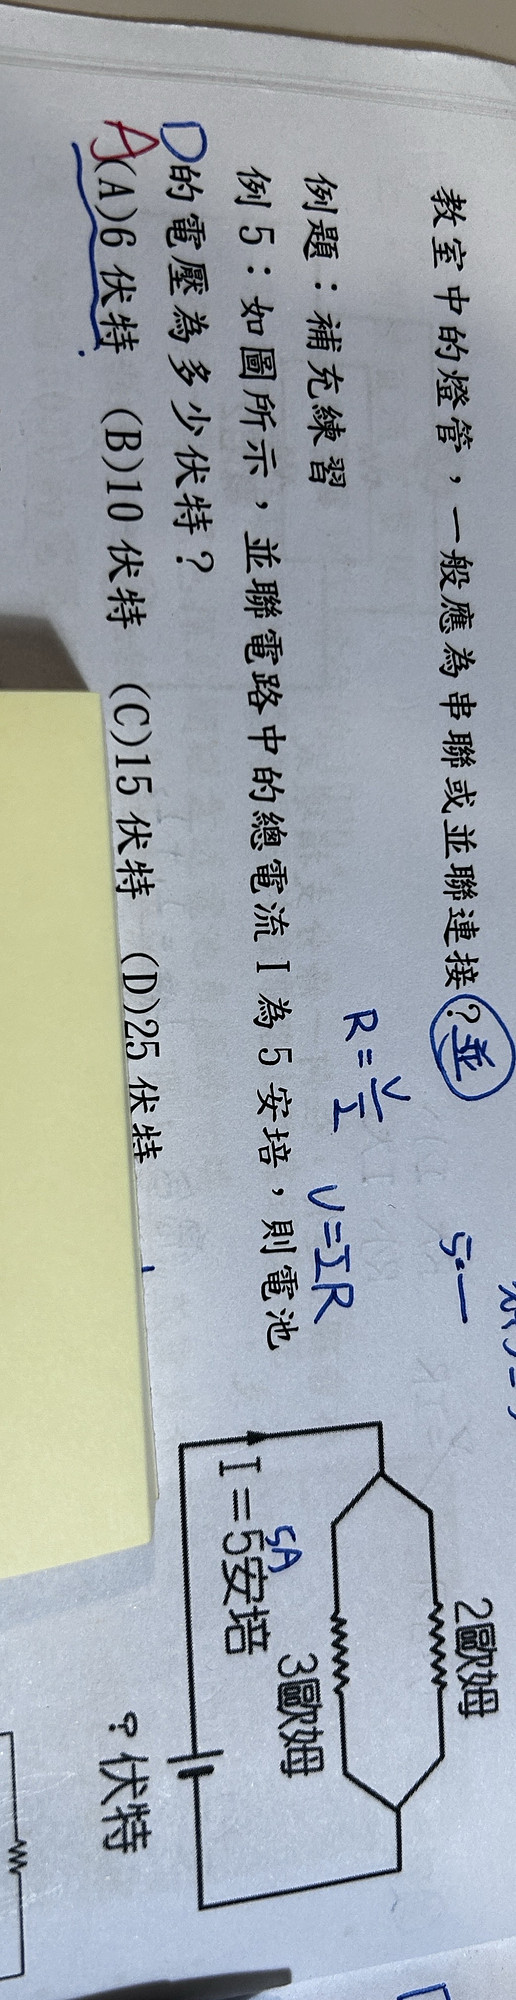 教室中的燈管，一般應為串聯或並聯連接？並
例題：補充練習
R=V/I
V=IR
例5：如圖所示，並聯電路中的總電流I為5安培，則電池
D的電壓為多少伏特？
A(A)6伏特 (B)10伏特 (C)15伏特 (D)25伏特
2歐姆
3歐姆
5A
I=5安培
?伏特